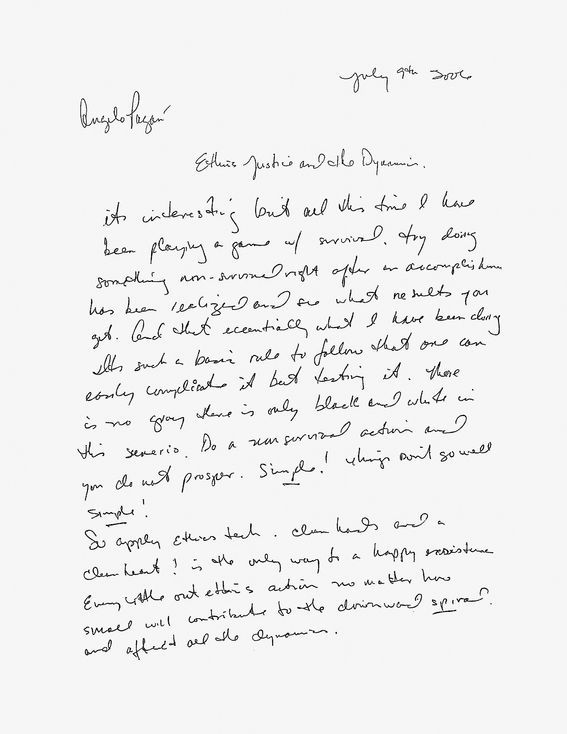 July 9th 2006
Angelo Pagán
Ethics Justice and the Dynamics.
its interesting but all this time I have
been playing a game w/ survival. try doing
something non-survival right after an accomplishment
has been realized and see what results you
get. And that eccentially what I have been doing
Its such a basic rule to follow that one can
easily complicate it but testing it. There
is no gray there is only black and white in
this senerio. Do a nonsurvival action and
you do not prosper. Simple! things don't go well
simple!
So apply Ethics tech. clean hands and a
clean heart! is the only way to a happy existence
Every little out ethics action no matter how
small will contribute to the downward spiral.
and affect all the dynamics.